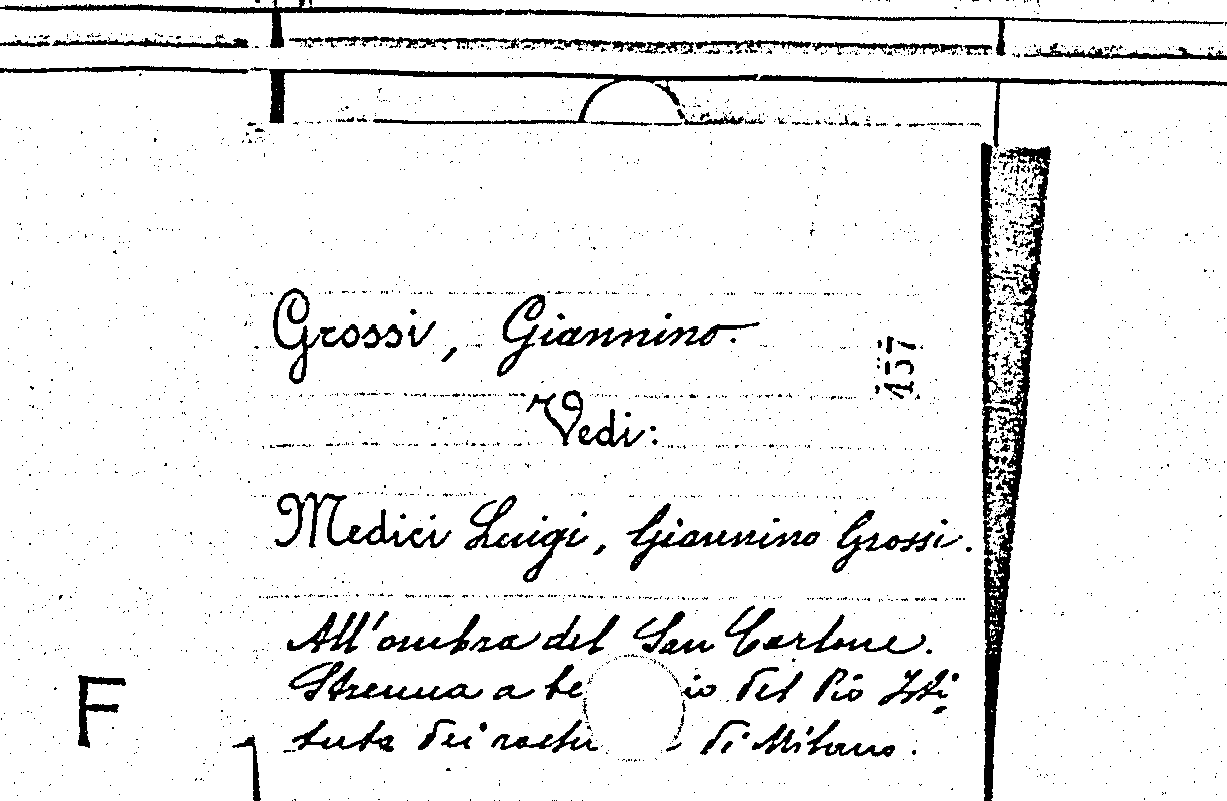 Grossi, Giannino.
457
Vedi:
Medici Luigi, Giannino Grossi.
All'ombra del San Carlone.
Strenna a be io del Pio Isti-
tuto dei rachi di Milano.
F